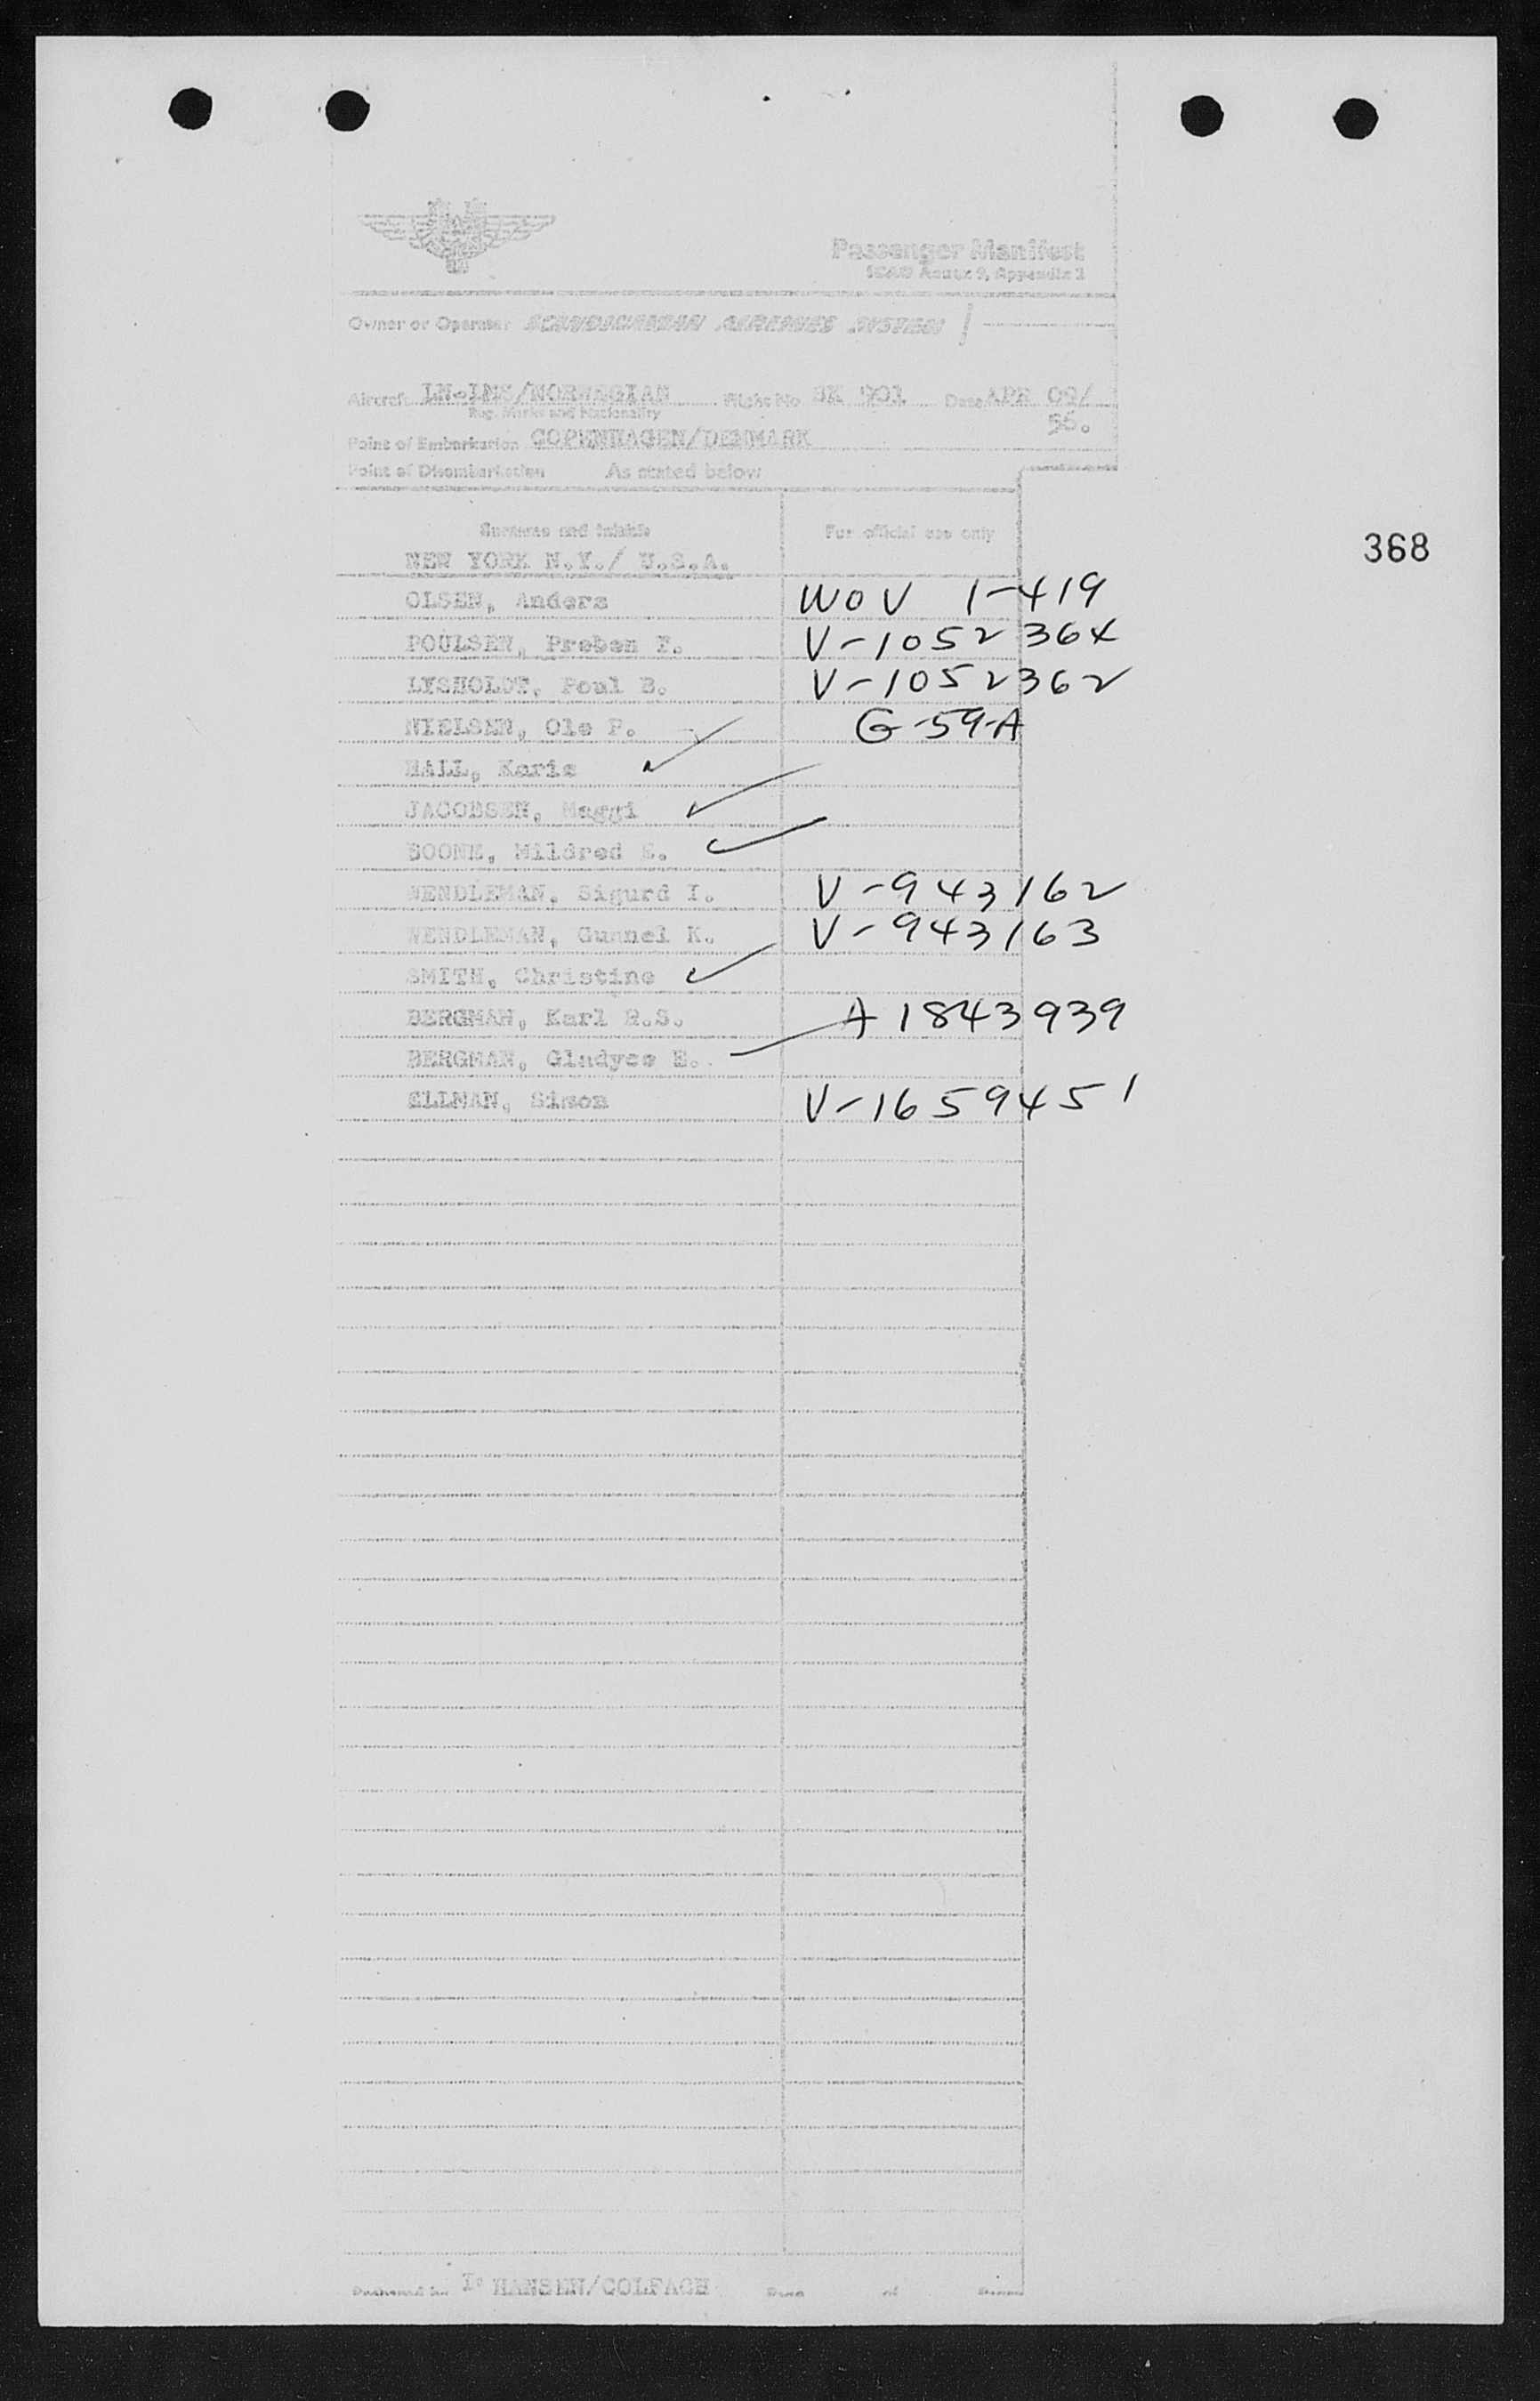 Passenger Manifest
ICAO Annex 9, Appendix 2
Owner or Operator SCANDINAVIAN AIRLINES SYSTEM
Aircraft LN-INS/NORWEGIAN Flight No SK 901 Date APR 09/
Reg. Marks and Nationality 56.
Point of Embarkation COPENHAGEN/DENMARK
Point of Disembarkation As stated below
Surname and initials For official use only
368
NEW YORK N.Y./ U.S.A.
OLSEN, Anders WOV 1-419
POULSEN, Preben F. V-1052364
LYSHOLDT, Poul B. V-1052362
NIELSEN, Ole P. G-59-A
HALL, Karis
JACOBSEN, Maggi
BOONE, Mildred E.
WENDLEMAN, Sigurd I. V-943162
WENDLEMAN, Gunnel K. V-943163
SMITH, Christine
BERGMAN, Karl R.S. A1843939
BERGMAN, Gladyce E.
ELLMAN, Simon V-1659451
Prepared by I. HANSEN/COLFACH Page of Pages